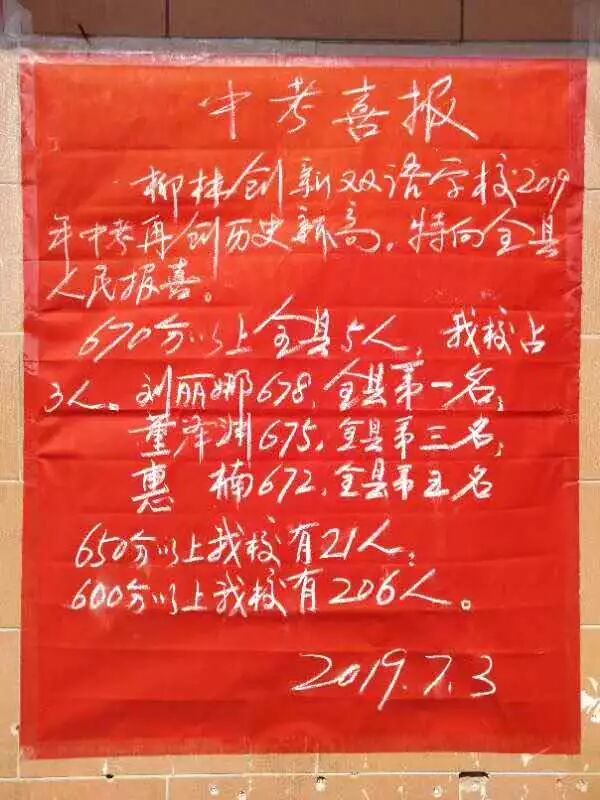 中考喜报
柳林创新双语学校2019
年中考再创历史新高，特向全县
人民报喜。
670分以上全县5人，我校占
3人。刘丽娜678，全县第一名；
董泽渊675，全县第三名；
惠 楠672，全县第五名
650分以上我校有21人；
600分以上我校有206人。
2019.7.3